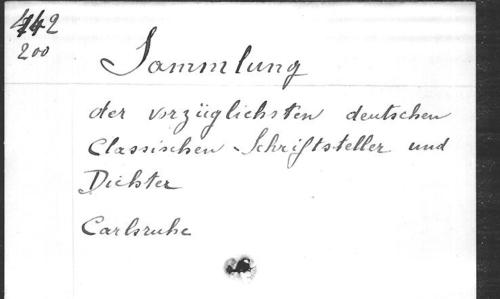 442
200
Sammlung
der vorzüglichsten deutschen
Classischen Schriftsteller und
Dichter
Carlsruhe